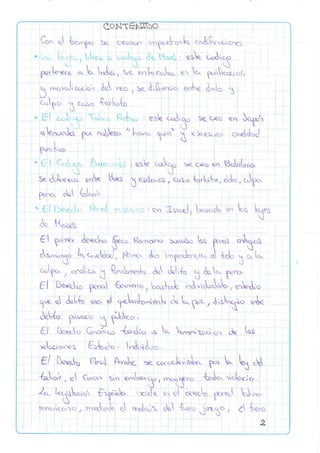 CONTENIDO
Con el tiempo se crearon importantes codificaciones
• Las leyes, libro o codigo de Manú: este codigo
pertenece a la India, se enfocaba en la purificacion
y moralizacion del reo, se diferencia entre dolo y
culpa y caso fortuito.
• El codigo Taiho Ritsu: este codigo se creo en Japón
atenuantes por nobleza y excesiva crueldad
punitiva
• El Codigo: este codigo se creo en Babilonia
Se diferencia entre libres y esclavos, caso fortuito, dolo, culpa
pena del talion
• El Derecho Penal mosaico: en Israel, basado en las leyes
de Moisés
El primer derecho Greco Romano suaviso las penas antiguas
disminuyo la crueldad, Roma dio importancia al dolo y a la
culpa, analiza y fundamento del delito y de la pena
El Derecho penal Germano, bastante individualista, entendio
que el delito era el quebrantamiento de la paz, distinguio entre
delito privado y publico.
El Derecho Canónico tendio a la humanizacion de las
relaciones Estado - Individuo.
El Derecho Penal Arabe se caracterizaba por la ley del
talion, el Coran sin embargo, tanta violencia.
La legislacion Española en el derecho penal latino-
americano, mediante el analisis del fuero juzgo, el fuero
2